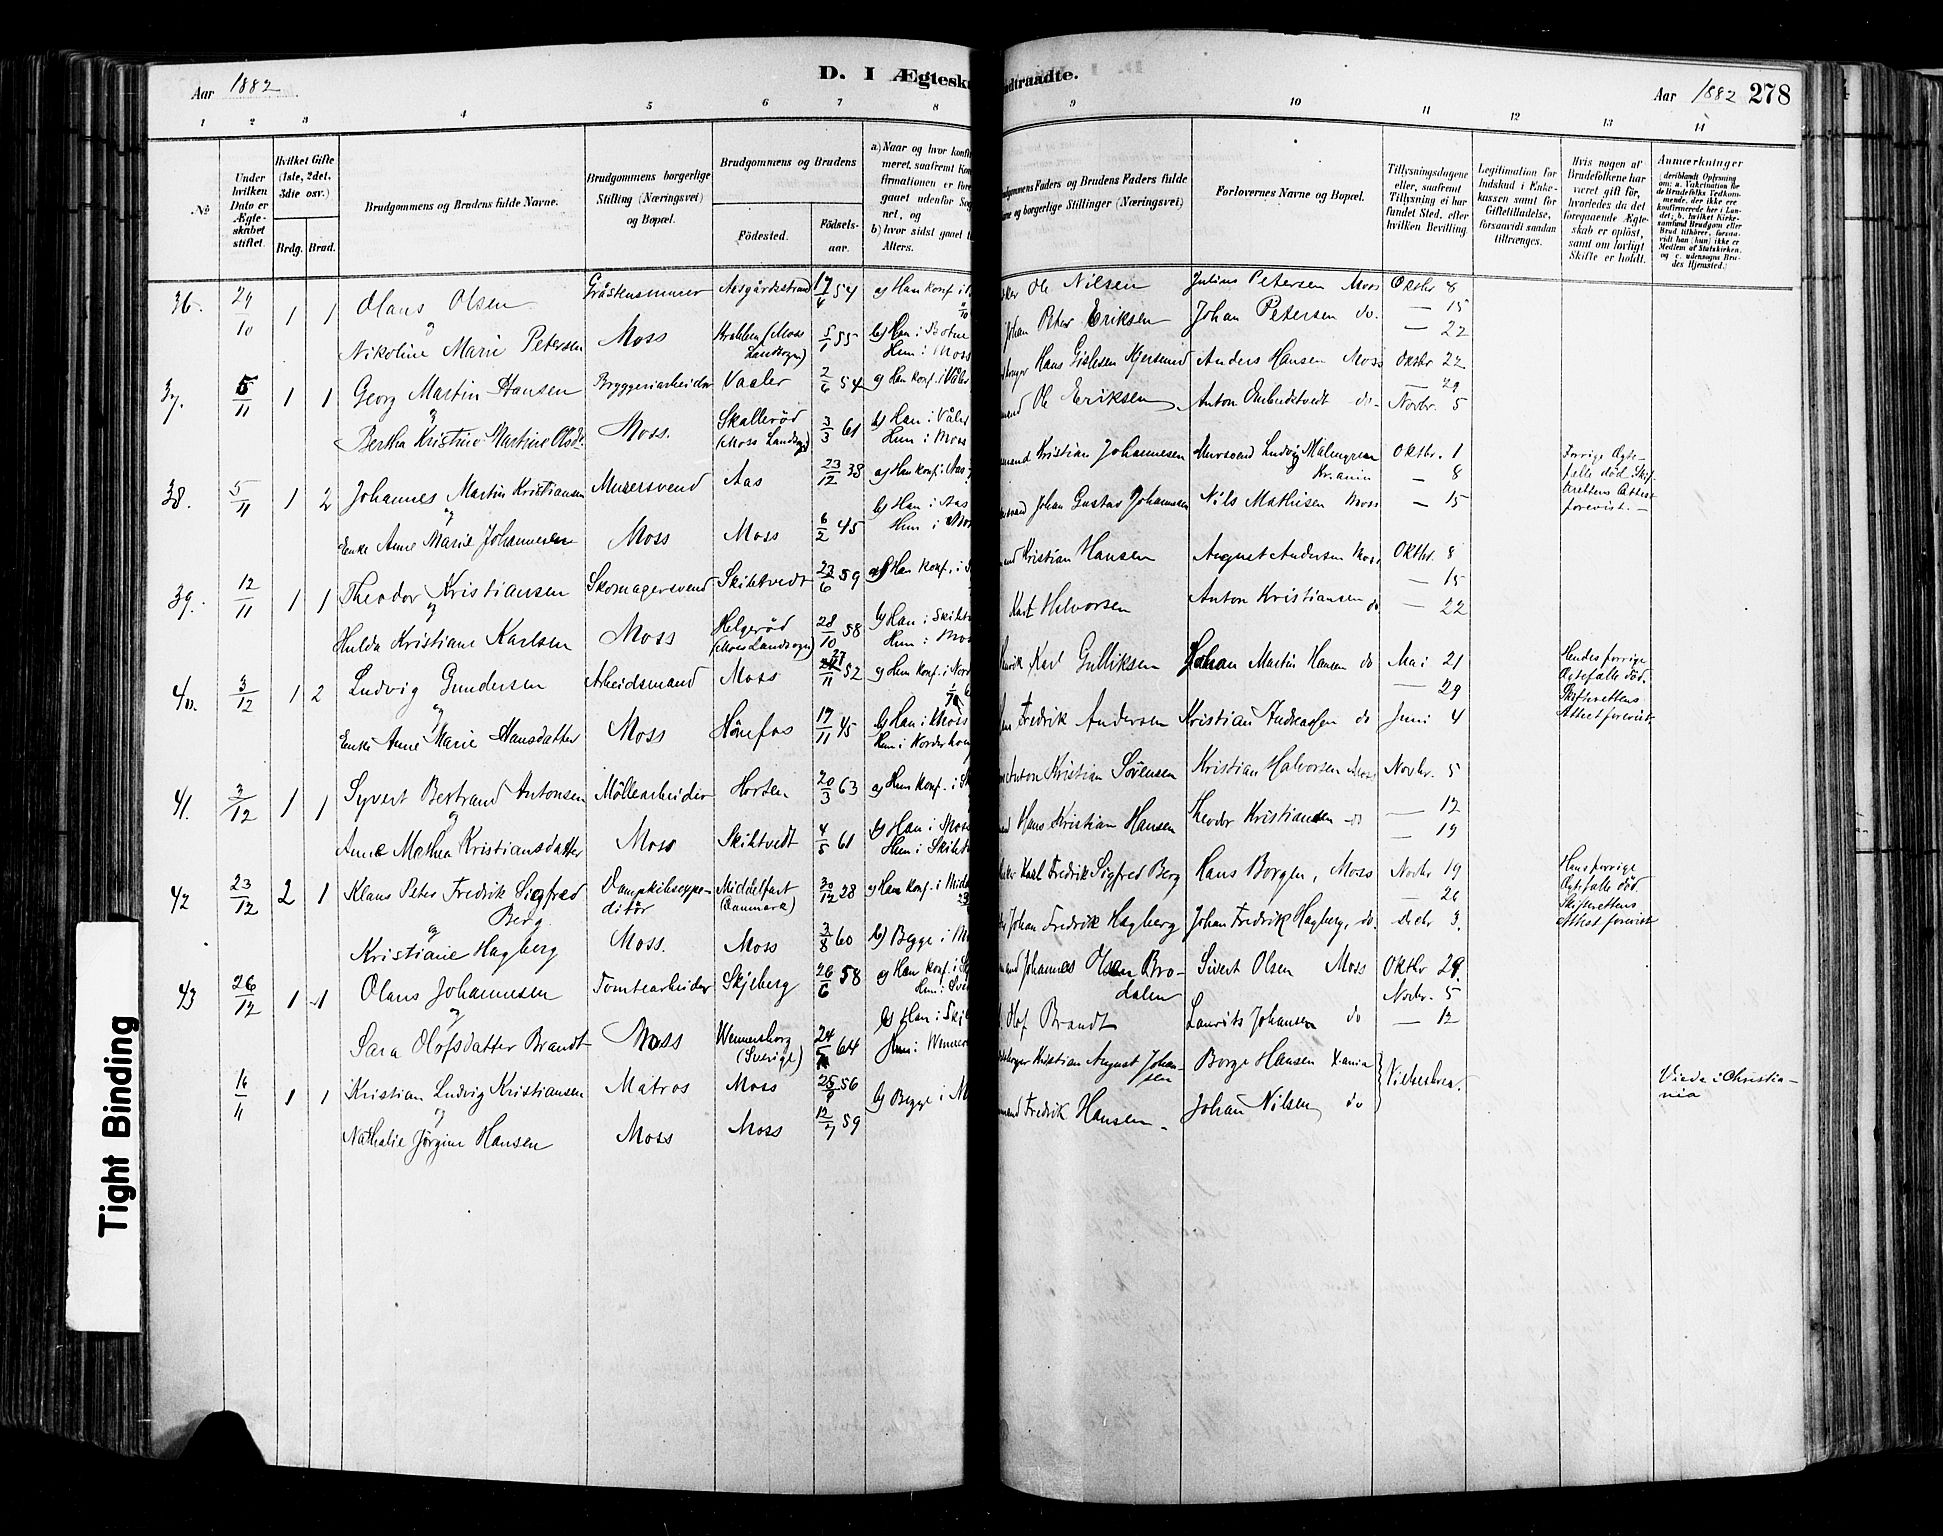 Aar 1882
D. I Ægtesk
ndtraadte.
Aar 1882 278
1 2 3 4 5 6 7 8 9 10 11 12 13 14
No
Under hvilken Dato er Ægteskabet stiftet.
Hvilket Gifte (1ste, 2det, 3die osv.)
Brdg. Brud.
Brudgommens og Brudens fulde Navne.
Brudgommens borgerlige Stilling (Næringsvei) og Bopæl.
Brudgommens og Brudens
Födested.
Födselsaar.
a) Naar og hvor konfir
meret, saafremt Kon
firmationen er fore
gaaet udenfor Sog
net, og
b) hvor sidst gaaet t
Alters.
udgommens Faders og Brudens Faders fulde
ne og borgerlige Stillinger (Næringsvei)
Forlovernes Navne og Bopæl.
Tillysningsdagene eller, saafremt Tillysning ei har fundet Sted, efter hvilken Bevilling.
Legitimation for Indskud i Enkekassen samt for Giftetilladelse, forsaavidt saadan tiltrænges.
Hvis nogen af Brudefolkene har været gift før, hvorledes da det foregaaende Ægteskab er oplöst, samt om lovligt Skifte er holdt.
Anmærkninger
(deriblandt Oplysning om: a. Vakcination for de Brudefolks Vedkommende, der ikke ere konfirmerede her i Landet; b. hvilket Kirkesamfund Brudgom eller Brud tilhører, forsaavidt han (hun) ikke er Medlem af Statskirken, og c. udensogns Brudes Hjemsted.)
36. 29/10 1 1 Olaus Olsen Gråstensmurer Aasgårdstrand 17/4 54 a) Han konf. i
Ole Nilsen Julius Petersen Moss Oktbr 8
og
Nikoline Marie Petersen Moss Krabben (Moss Landsogn) 5/1 55 b) Han i Botne Hun i Moss
Peter Eriksen Johan Petersen do. — 15
— 22
37. 5/11 1 1 Georg Martin Hansen Bryggeriarbeider Vaaler 2/6 54 a) Han konf. i Våler
Hans Gislesen Kjersund Anders Hansen Moss Oktbr 22
— 29
og
Bertha Kristine Martine Olsdr. Moss. Skallerød (Moss Landsogn) 3/3 61 b) Han i Våler Hun i Moss
Ole Eriksen Anton Ombudstvedt do- Novbr. 5
38. 5/11 1 2 Johannes Martin Kristiansen Murersvend Aas 23/12 38 a) Han konf. i Aas
mand Kristian Johannesen Murersvend Ludvig Malmgren Kr.ania Oktbr. 1
— 8
Forrige Ægtefælle död. Skifterettens Attest forevist. —
og
Enke Anne Marie Johannesen Moss Moss 6/2 45 b) Han i Aas Hun i Moss
Johan Gustav Johannesen Nils Mathisen Moss — 15
39. 12/11 1 1 Theodor Kristiansen Skomagersvend Skibtvedt 23/6 59 a) Han konf. i S
Kristian Hansen August Andersen Moss Oktbr. 8
— 15
og
Hulda Kristiane Karlsen Moss Helgeröd (Moss Landsogn) 28/10 58 b) Han i Skibt Hun i Mos
Karl Helvorsen Anton Kristiansen do — 22
40. 3/12 1 2 Ludvig Gundersen Arbeidsmand Moss 27/11 52 a) Hun konf. i Nor
Karl Gulliksen Johan Martin Hansen do Mai 21
— 29
Hendes forrige Ægtefælle död. Skifterettens Attest forevist
og
Enke Anne Marie Hansdatter Moss Hönefos 17/11 45 b) Han i Moss Hun i Norderhov
Fredrik Andersen Kristian Andreassen do Juni 4
41. 3/12 1 1 Syvert Bertrand Antonsen Möllearbeider Horten 20/3 63 a) Hun konf. i Sk
Anton Kristian Sörensen Kristian Halvorsen Moss Novbr. 5
— 12
og
Anne Mathea Kristiansdatter Moss Skibtvedt 4/5 61 b) Han i Moss Hun i Skibt
Hans Kristian Hansen Theodor Kristiansen do — 19
42 23/12 2 1 Klaus Peter Fredrik Sigfred Berg Dampskibsexpeditör Middelfart (Danmark) 30/12 28 a) Han konf. i Midd
Karl Fredrik Sigfred Berg Hans Borgen, Moss Novbr 19
— 26
Hans forrige Ægtefælle död. Skifterettens Attest forevist
og
Kristiane Hagberg Moss. Moss 3/8 60 b) Begge i M
Johan Fredrik Hagberg Johan Fredrik Hagberg, do. Decbr 3.
43 26/12 1 1 Olaus Johannesen Tomtearbeider Skjeberg 26/6 58 a) Han konf. i Sk Hun i Sver
Johannes Olsen Brodalen Sivert Olsen Moss Oktbr 29.
Novbr. 5
og
Sara Olofsdatter Brandt Moss Wennersborg (Sverige) 24/5 64 b) Han i Skj Hun i Wenner
Olof Brandt Laurits Johansen do — 12
16/11 1 1 Kristian Ludvig Kristiansen Matros Moss 25/9 56 b) Begge i M
Kristian August Johansen Borge Hansen Xania } Vielsesbrev.
Viede i Christiania
og
Nathalie Jörgine Hansen Moss Moss 12/7 59
mand Fredrik Hansen. Johan Nilsen do
Tight Binding